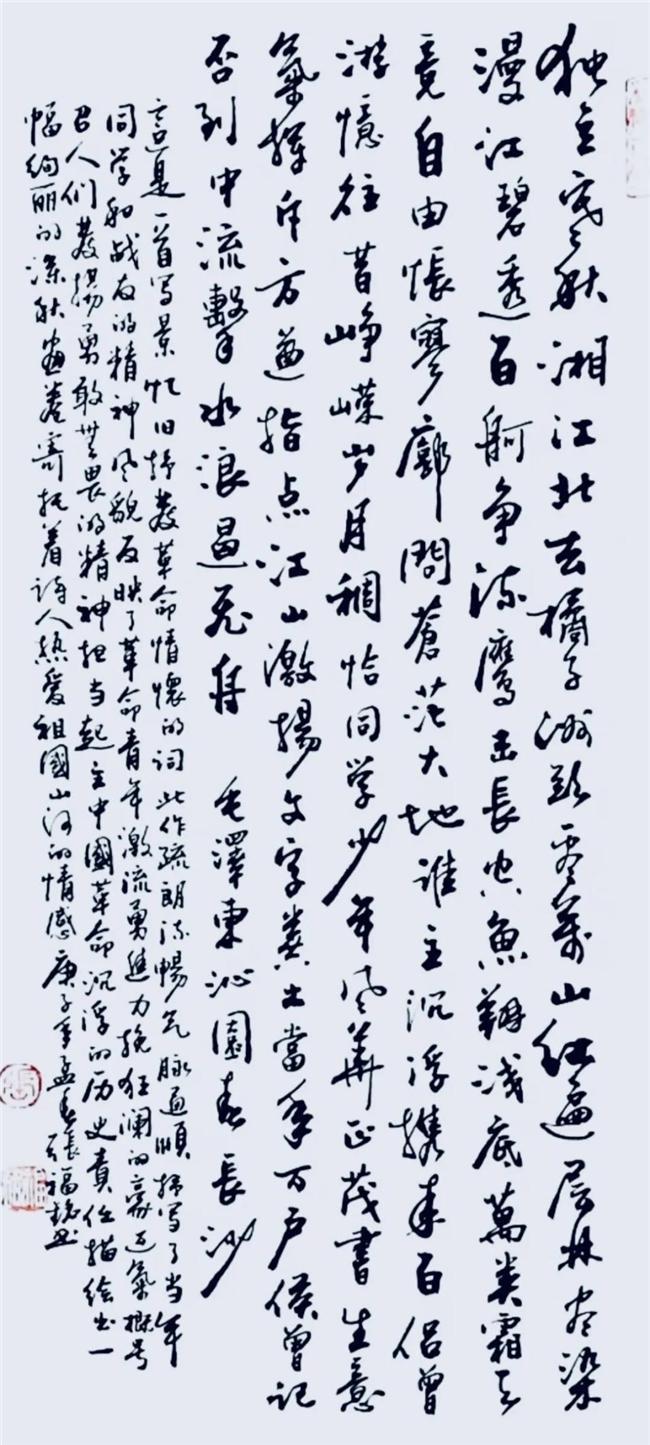 独立寒秋湘江北去橘子洲头看萬山红遍层林尽染
漫江碧透百舸争流鹰击長空魚翔浅底萬类霜天
竟自由悵寥廓問蒼茫大地谁主沉浮携来百侣曾
游憶往昔峥嵘岁月稠恰同学少年风華正茂書生意
氣挥斥方遒指点江山激揚文字粪土當年万户侯曾记
否到中流擊水浪遏飛舟 毛澤東沁園春長沙
這是一首写景忆旧抒發革命情懷的词此作疏朗流暢气脉通順描写了当年
同学和战友的精神风貌反映了革命青年激流勇進力挽狂澜的豪迈氣概号
召人们發揚勇敢無畏的精神担当起主中國革命沉浮的历史责任描绘出一
幅绚丽的深秋画卷寄托着詩人热爱祖國山河的情感 庚子年孟春張福書